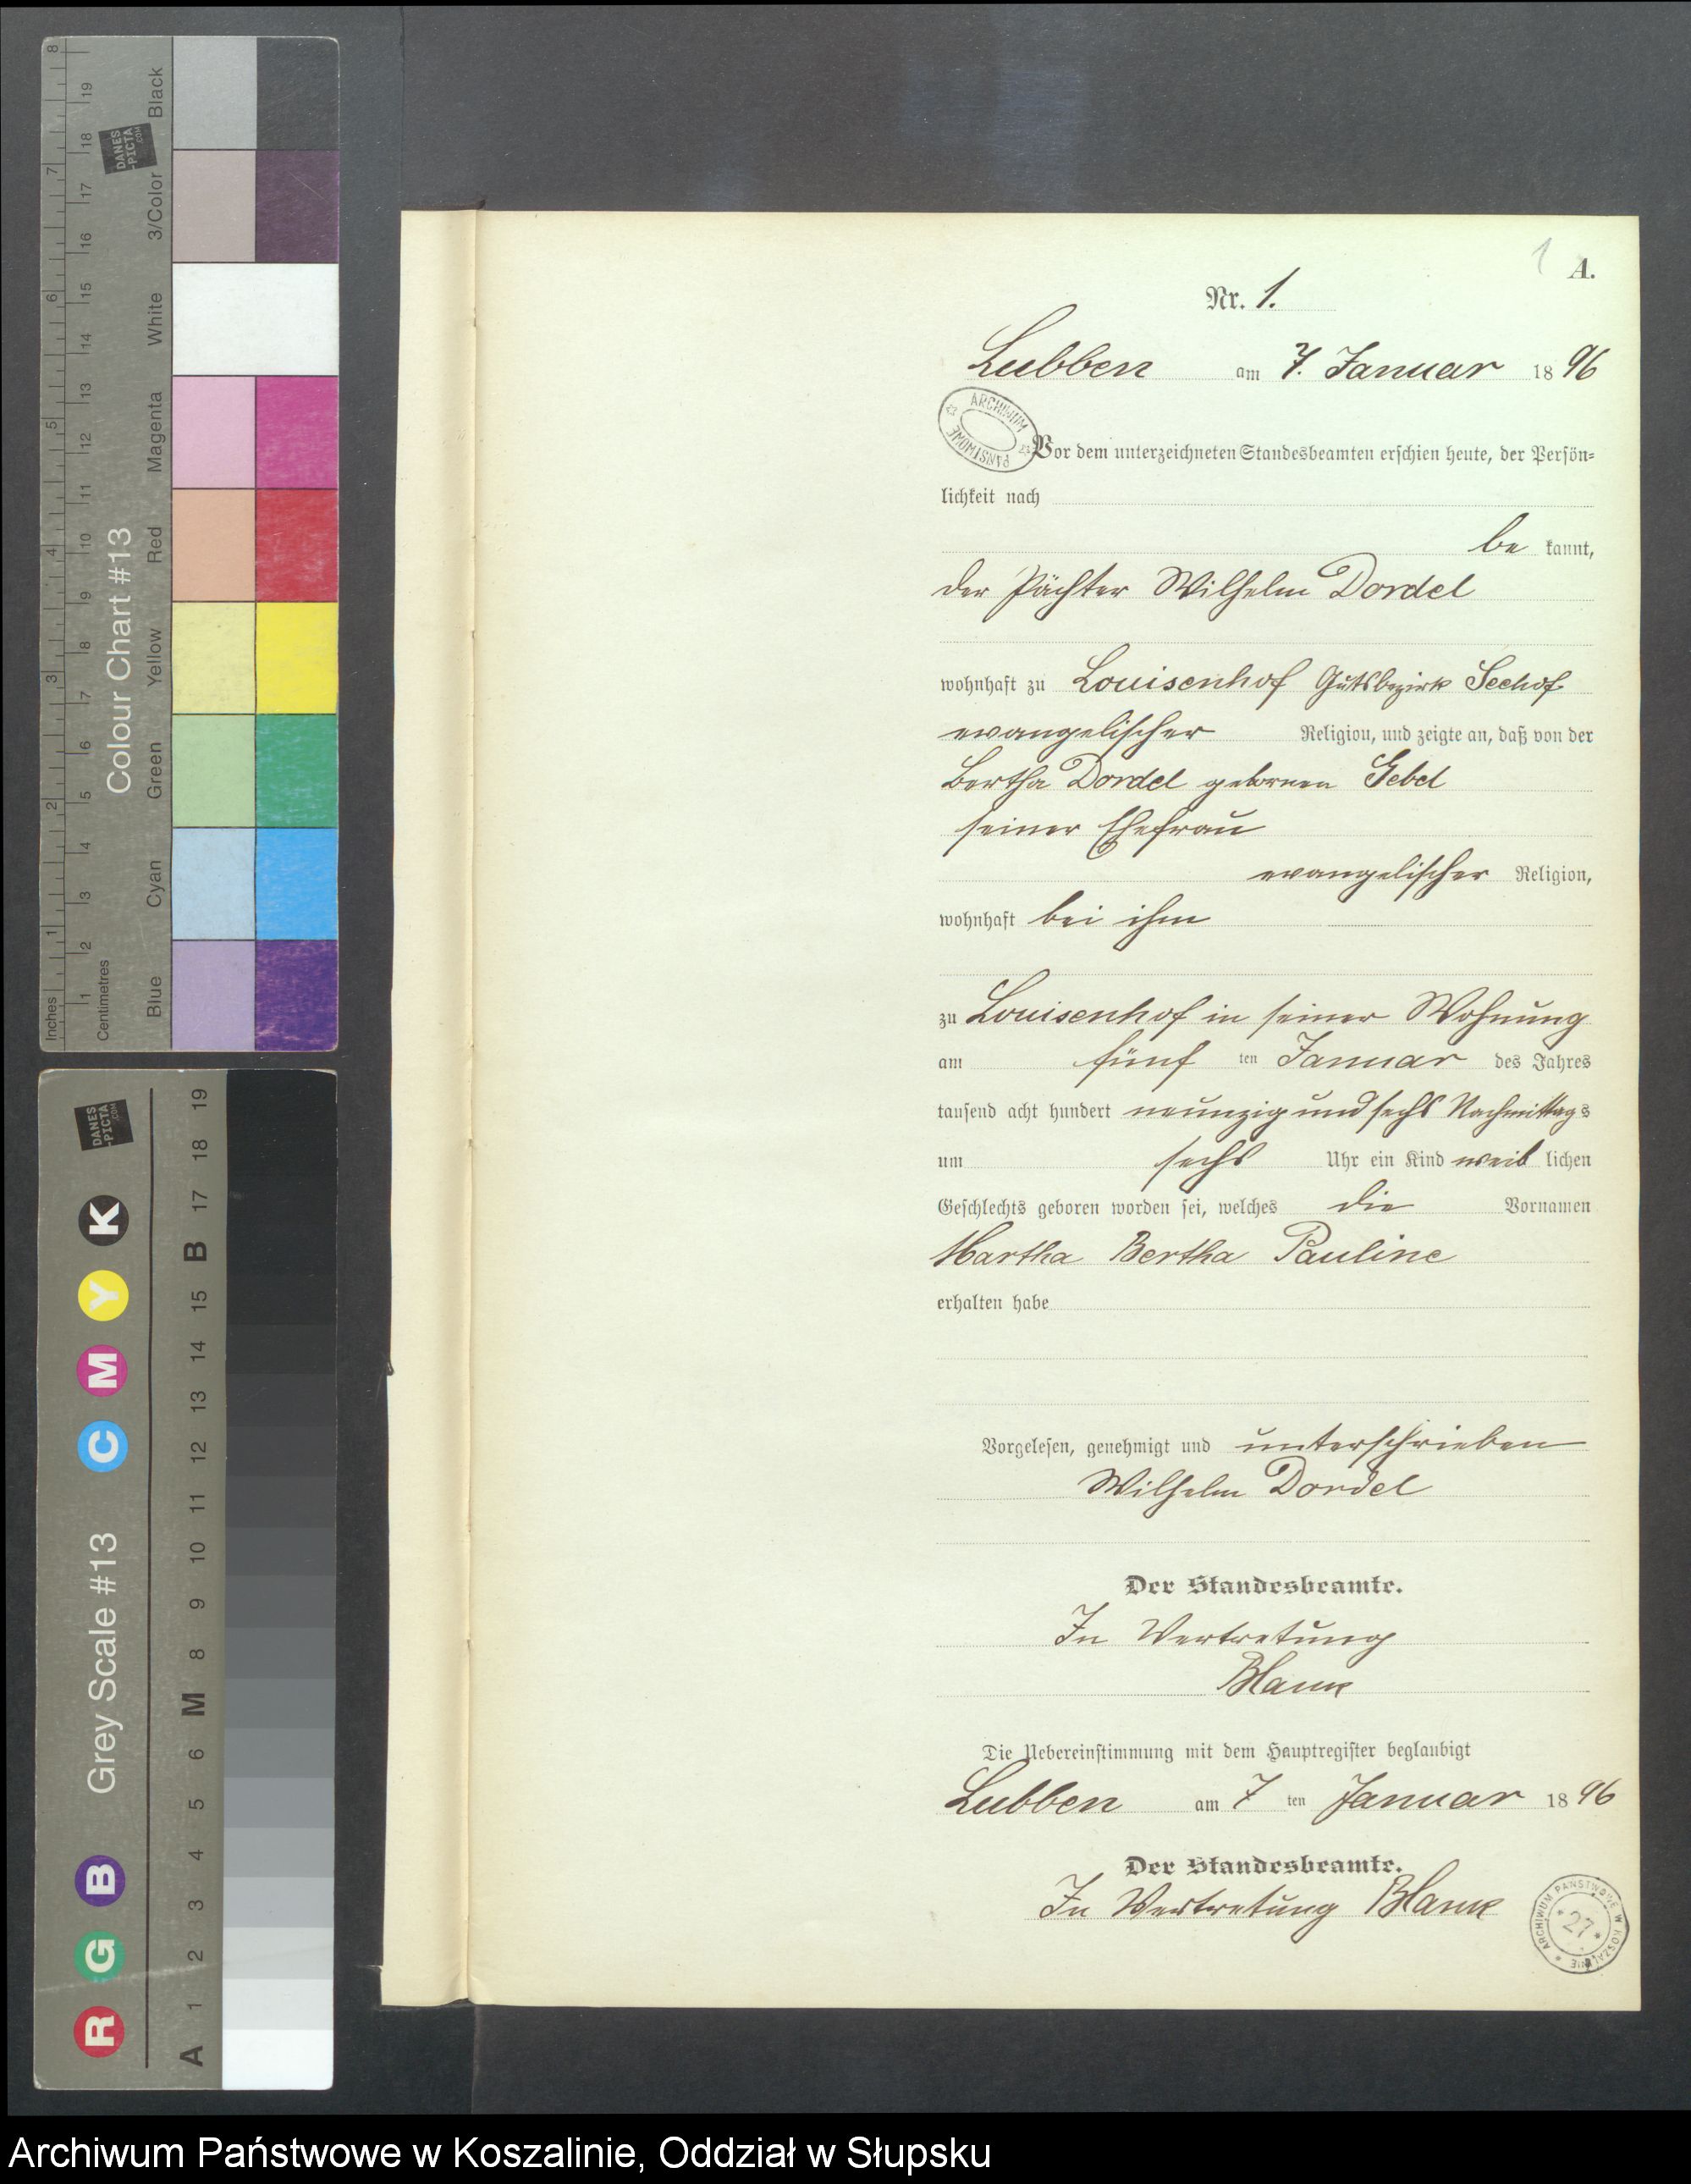 1 A.
Nr. 1.
Lubben am 7. Januar 1896
ARCHIWUM PAŃSTWOWE
Vor dem unterzeichneten Standesbeamten erschien heute, der Persön-
lichkeit nach
be kannt,
der Pächter Wilhelm Dordel
wohnhaft zu Louisenhof Gutsbezirk Seehof
evangelischer Religion, und zeigte an, daß von der
Bertha Dordel gebornen Gebel
seiner Ehefrau
evangelischer Religion,
wohnhaft bei ihm
zu Louisenhof in seiner Wohnung
am fünf ten Januar des Jahres
tausend acht hundert neunzig und sechs Nachmittags
um sechs Uhr ein Kind weib lichen
Geschlechts geboren worden sei, welches die Vornamen
Martha Bertha Pauline
erhalten habe
Vorgelesen, genehmigt und unterschrieben
Wilhelm Dordel
Der Standesbeamte.
In Vertretung
Blank
Die Uebereinstimmung mit dem Hauptregister beglaubigt
Lubben am 7 ten Januar 1896
Der Standesbeamte.
In Vertretung Blank
ARCHIWUM PAŃSTWOWE W KOSZALINIE
27
Colour Chart #13
Blue Cyan Green Yellow Red Magenta White 3/Color Black
Inches 1 2 3 4 5 6 7 8
Centimetres 1 2 3 4 5 6 7 8 9 10 11 12 13 14 15 16 17 18 19
DANES
-PICTA
.COM
Grey Scale #13
R G B C M Y K
A 1 2 3 4 5 6 M 8 9 10 11 12 13 14 15 B 17 18 19
DANES
-PICTA
.COM
Archiwum Państwowe w Koszalinie, Oddział w Słupsku